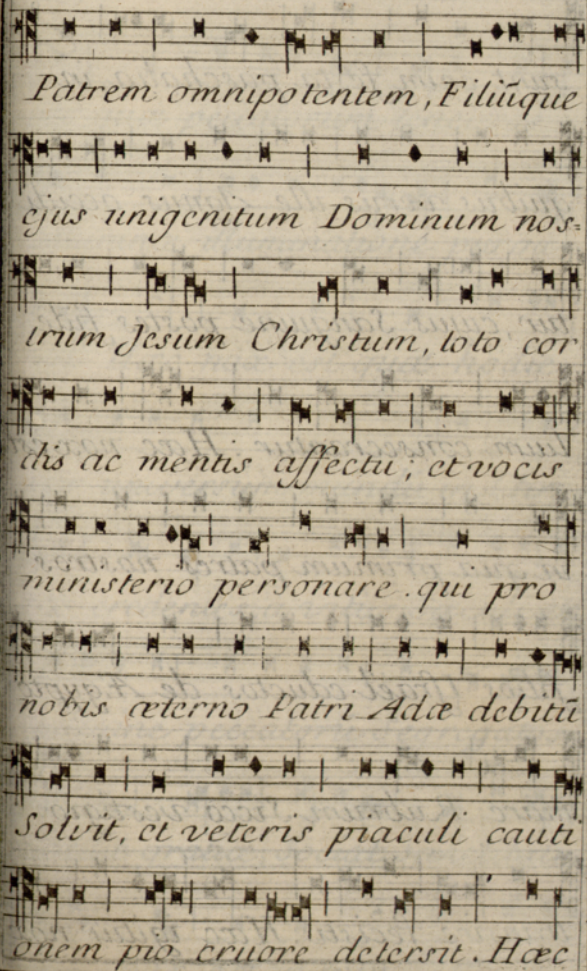 Patrem omnipotentem, Filiūque
ejus unigenitum Dominum nos=
trum Jesum Christum, toto cor
dis ac mentis affectu; et vocis
ministerio personare. qui pro
nobis æterno Patri Adæ debitū
Solvit, et veteris piaculi cauti
onem pio cruore detersit. Hæc